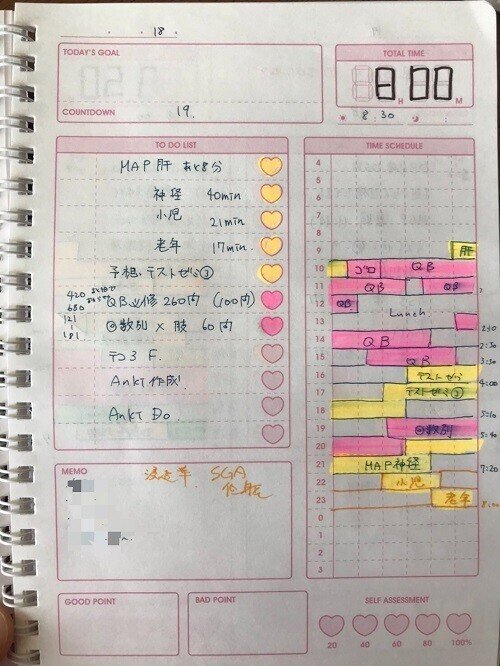 18.
TODAY'S GOAL
TOTAL TIME
8 00
H M
COUNTDOWN
19.
8.30
TO DO LIST
MAP 肝 あと8分
神経 40min
小児 21min
老年 17min
予想・テストゼミ③
QB必修 260問 (100問)
420
680
121
181
数別 × 肢 60問
テコ3 F.
Anki 作成
Anki Do
TIME SCHEDULE
4
5
6
7
8
9
肝
10
ゴロ
QB
11
QB
QB
12
QB
Lunch
13
14
QB
2:30
15
QB
3:30
16
テストゼミ
4:00
17
テストゼミ②
18
5:10
19
数別
5:40
20
21
MAP神経
7:20
22
小児
23
老年
8:00
0
1
2
3
MEMO
SGA
GOOD POINT
BAD POINT
SELF ASSESSMENT
20 40 60 80 100%